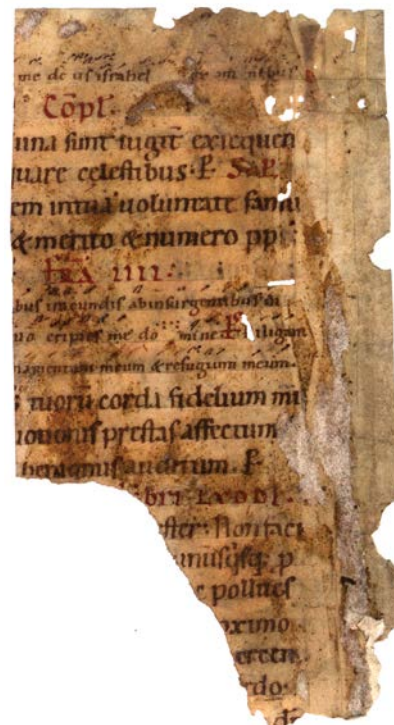 me de us israhel om nibus
Cōpł.
una sunt iugit̄ exequen
uare celestibus. P
em intua uoluntate famu
& merito & numero ppl
FRĀ IIII.
bus iracundis abinsurgentibus
uo eripies me do mine P Diligam
mamentum meum & refugium meum.
s tuorū corda fidelium mi
uotionis prestas affectum
benignus auditum. P.
bri
ster. Non faci
unusqsq; p
e pollues
oximo
ercen
rdo.